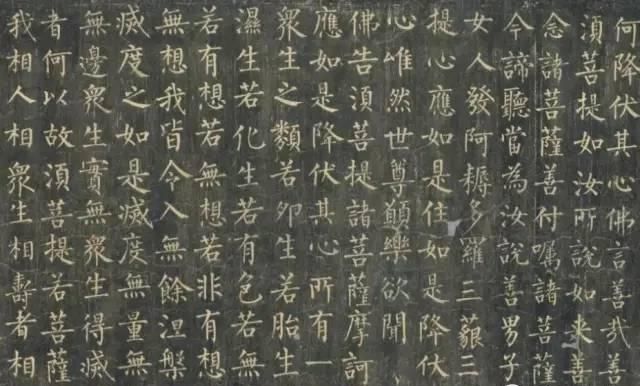 何降伏其心佛言善哉善
須菩提如汝所說如来善
念諸菩薩善付囑諸菩薩
今諦聽當為汝說善男子
女人發阿耨多羅三藐三
提心應如是住如是降伏
心唯然世尊願樂欲聞
佛告須菩提諸菩薩摩訶
應如是降伏其心所有一
衆生之類若卵生若胎生
濕生若化生若有色若無
若有想若無想若非有想
無想我皆令入無餘涅槃
滅度之如是滅度無量無
無邊衆生實無衆生得滅
者何以故須菩提若菩薩
我相人相衆生相壽者相